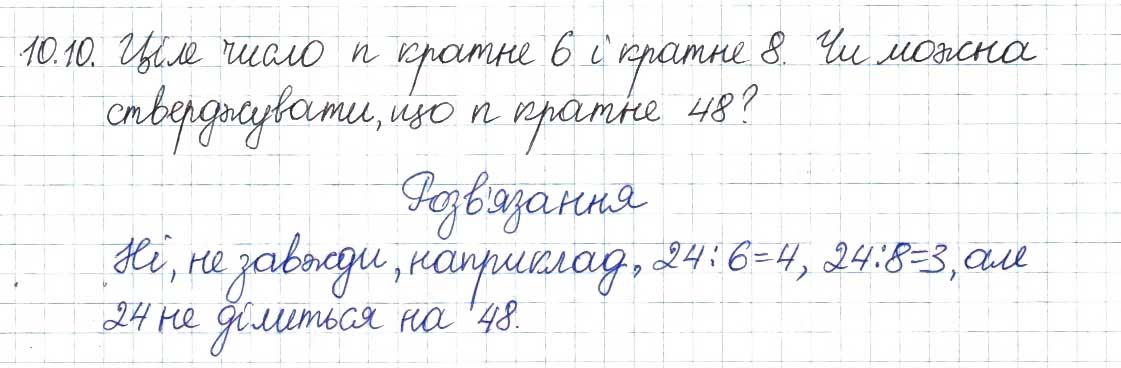 10.10. Ціле число n кратне 6 і кратне 8. Чи можна
стверджувати, що n кратне 48?
Розв'язання
Ні, не завжди, наприклад, 24:6=4, 24:8=3, але
24 не ділиться на 48.